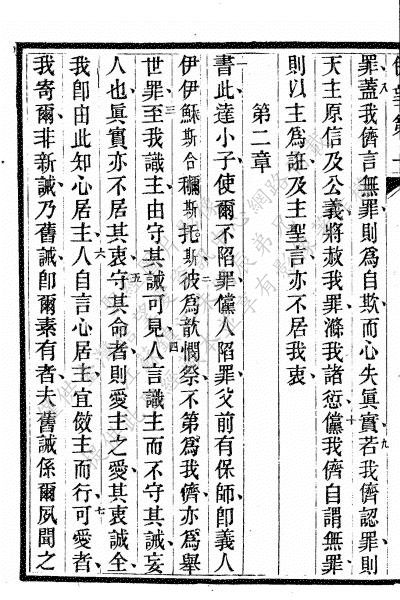 罪蓋我儕言無罪則爲自欺而心失眞實若我儕認罪則
天主原信及公義將赦我罪滌我諸愆儻我儕自謂無罪
則以主爲誑及主聖言亦不居我衷
第二章
書此達小子使爾不陷罪儻人陷罪父前有保師卽義人
伊伊穌斯合穪斯托斯彼爲歆憫祭不第爲我儕亦爲舉
世罪至我識主由守其誡可見人言識主而不守其誡妄
人也眞實亦不居其衷守其命者則愛主之愛其衷誠全
我卽由此知心居主人自言心居主宜倣主而行可愛者
我寄爾非新誡乃舊誡卽爾素有者夫舊誡係爾夙聞之